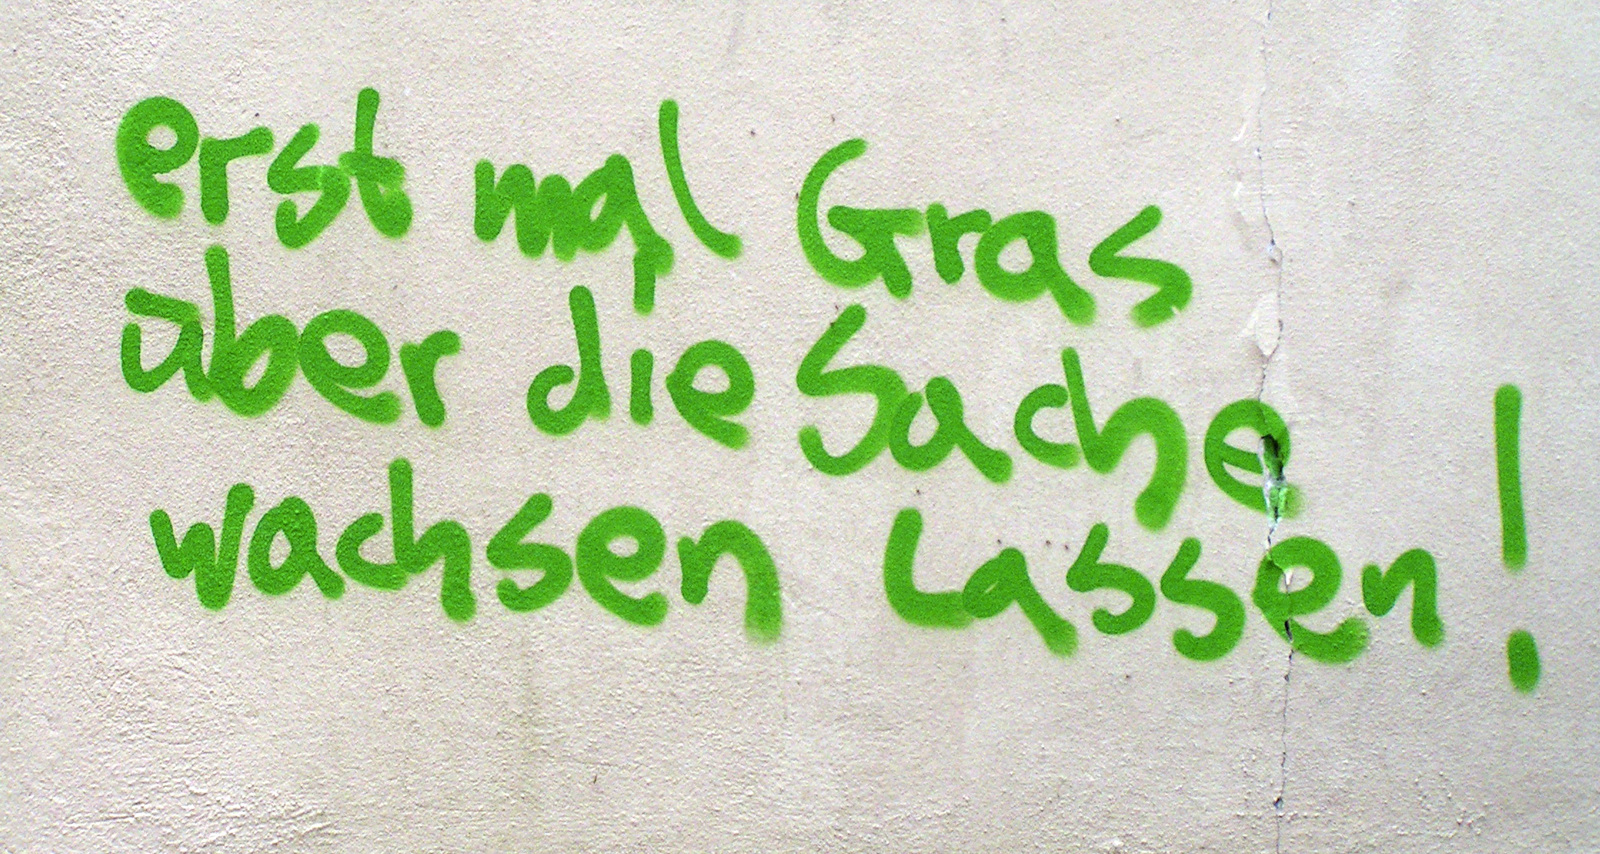 erst mal Gras
über die Sache
wachsen lassen!